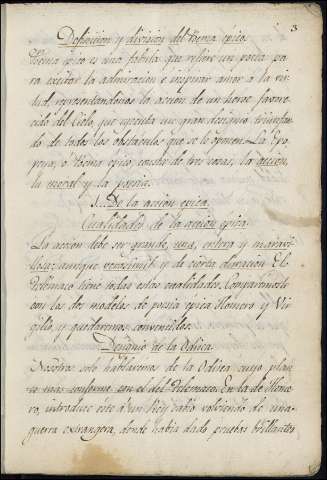 3
Definicion y division del Poema epico.
Poema epico es una fabula que refiere un poeta pa
ra excitar la admiracion e inspirar amor á la vir
tud, representandonos la accion de un heroe favore
cido del Cielo, que ejecuta un gran designio triunfan
do de todos los obstaculos que se le oponen. La Epo
peya, o Poema epico, consta de tres cosas, la accion,
la moral y la poesia.
De la accion epica.
Cualidades de la accion epica.
La accion debe ser grande, una, entera y maravi
llosa; aunque verosimil y de cierta duracion. El
Telemaco tiene todas estas cualidades. Comparemosle
con los dos modelos de poesia epica Homero y Vir
gilio, y quedaremos convencidos.
Designio de la Odisea.
Nosotros solo hablaremos de la Odisea cuyo plan
es mas conforme con el del Telemaco. En la de Home
ro, introduce éste á un Rey sabio volviendo de una
guerra extrangera, donde habia dado pruebas brillantes